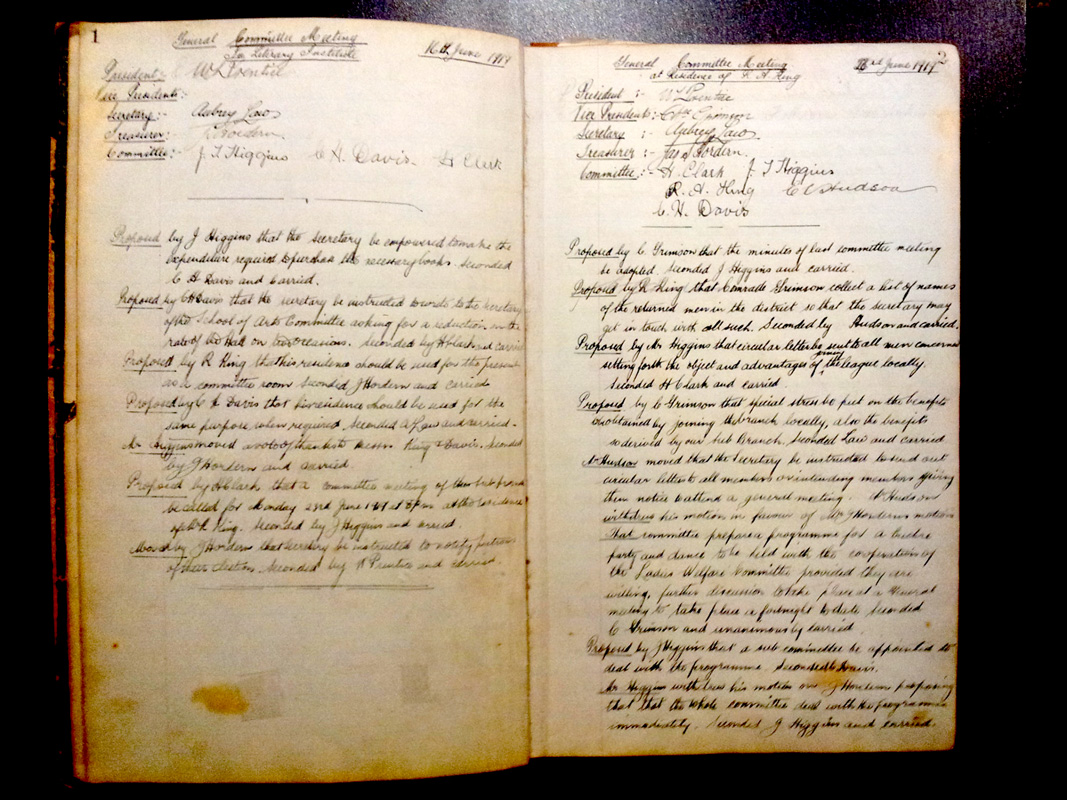 1
General Committee Meeting
In Literary Institute 16th June 1919
President:- W L Prentice
Vice Presidents:-
Secretary:- Aubrey Law
Treasurer:- J Hordern
Committee:- J. T Higgins C H. Davis. H Clark
Proposed by J Higgins that the secretary be empowered to make the
expenditure required to purchase the necessary books. Seconded
C H Davis and Carried.
Proposed by C H Davis that the secretary be instructed to write to the Secretary
of the School of Arts Committee asking for a reduction in the
rate of the Hall on our occasions. Seconded by H Clark and carried
Proposed by R King that his residence should be used for the present
as a committee room Seconded J Hordern and carried
Proposed by C H Davis that his residence should be used for the
same purpose when required. Seconded A Law and carried.
Mr Higgins moved a vote of thanks to Messrs King & Davis. Seconded
by J Hordern and carried.
Proposed by H Clark that a committee meeting of this
be called for Monday 23rd June 1919 at 8 pm at the residence
of Mr R King. Seconded by J Higgins and carried.
Moved by J Hordern that Secretary be instructed to notify
of their election. Seconded by W Prentice and carried
2
General Committee Meeting 23rd June 1919
at Residence of R A King
President :- W L Prentice
Vice Presidents:- Chas Grimson
Secretary :- Aubrey Law
Treasurer :- Jas J Hordern.
Committee :- H. Clark J. T Higgins
R. A. King C E Hudson
C. H. Davis
Proposed by C. Grimson that the minutes of last committee meeting
be adopted. Seconded J Higgins and carried.
Proposed by R King that Comrade Grimson collect a list of names
of the returned men in the district so that the secretary may
get in touch with all such. Seconded by Hudson and carried.
Proposed by Mr Higgins that circular letter be sent to all men concerned
setting forth the object and advantages of joining the league locally.
Seconded H Clark and carried.
Proposed by C Grimson that special stress be put on the benefits
obtained by joining the branch locally, also the benefits
so derived by our Sub Branch. Seconded Law and carried
Mr Hudson moved that the Secretary be instructed to send out
circular letter to all members or intending members giving
them notice to attend a general meeting. Mr Hudson
withdrew his motion in favour of Mr J Horderns motion
That committee prepare a programme for a Euchre
party and dance to be held with the cooperation of
the Ladies Welfare Committee provided they are
willing, further discussion to take place at a General
meeting to take place a fortnight to date Seconded
C Grimson and unanimously carried.
Proposed by J Higgins that a sub committee be appointed to
deal with the programme. Seconded C Davis.
Mr Higgins withdrew his motion on J Hordern proposing
that that the whole committee deal with the programme
immediately. Seconded J Higgins and carried.